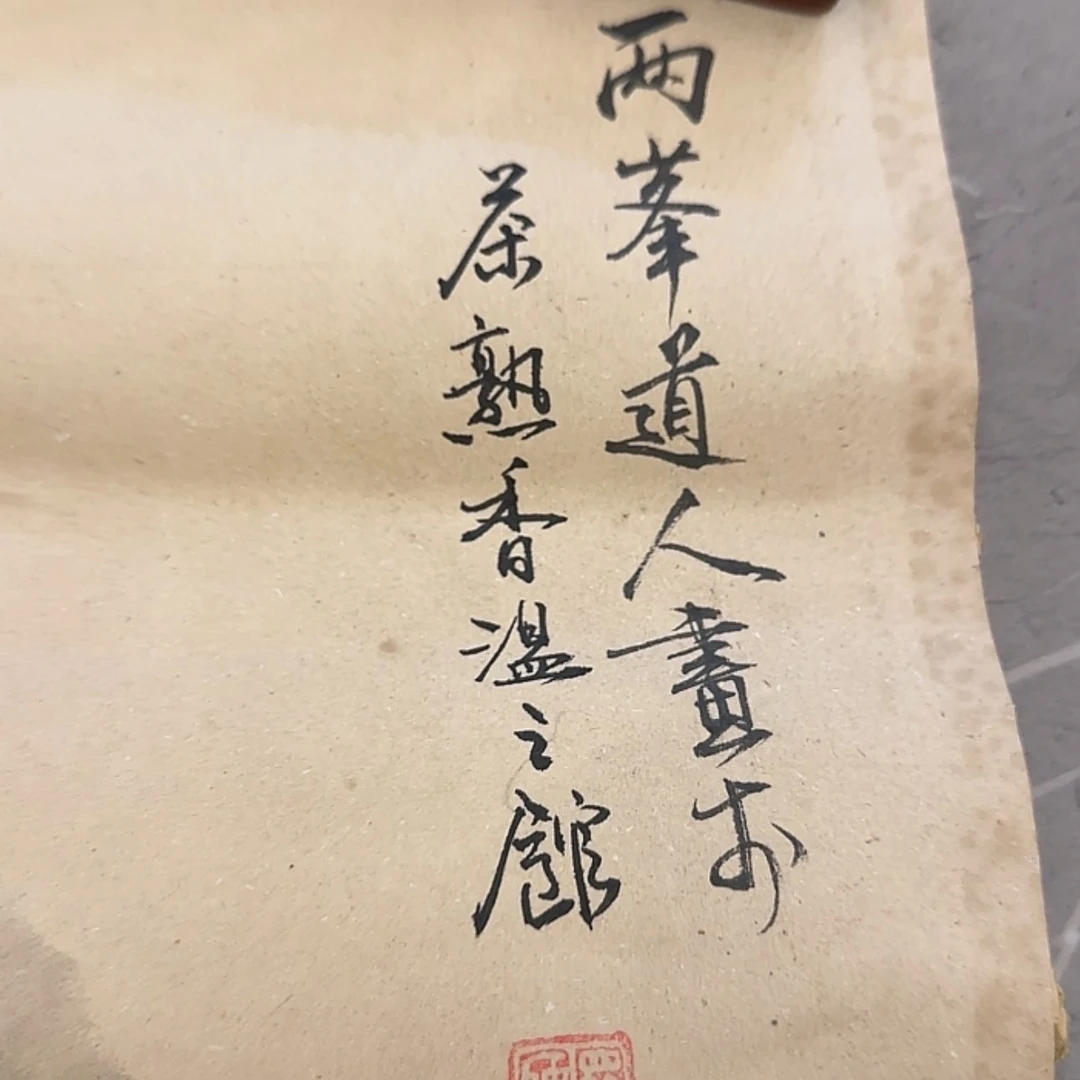 兩峯道人畫於
茶熟香溫之館